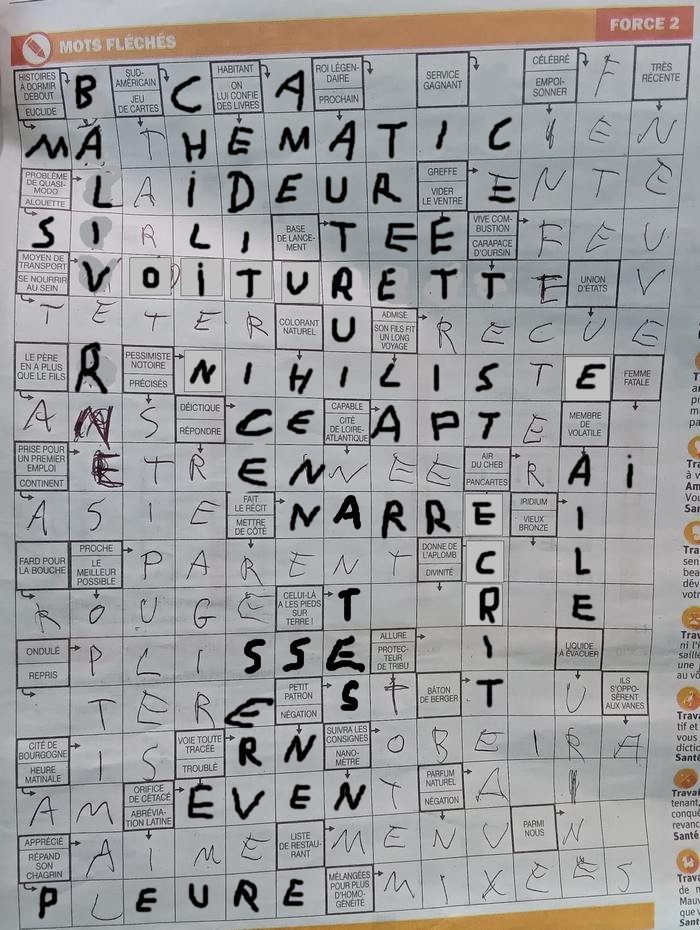 FORCE 2
MOTS FLÉCHÉS
HISTOIRES À DORMIR DEBOUT
EUCLIDE
B
SUD-AMÉRICAIN
JEU DE CARTES
C
HABITANT
ON LUI CONFIE DES LIVRES
A
ROI LÉGENDAIRE
PROCHAIN
SERVICE GAGNANT
CÉLÉBRÉ
EMPOISONNER
F
TRÈS RÉCENTE
M A T H E M A T I C I E N
PROBLÈME DE QUASIMODO
ALOUETTE
L A I D E U R
GREFFE
VIDER LE VENTRE
E N T E
S I R L I
BASE DE LANCEMENT
T E E
VIVE COMBUSTION
CARAPACE D'OURSIN
F E U
MOYEN DE TRANSPORT
SE NOURRIR AU SEIN
V O I T U R E T T E
UNION D'ÉTATS
V
T E T E R
COLORANT NATUREL
U
ADMISE
SON FILS FIT UN LONG VOYAGE
R E C U E
LE PÈRE EN A PLUS QUE LE FILS
R
PESSIMISTE NOTOIRE
PRÉCISÉS
N I H I L I S T E
FEMME FATALE
A N S
DÉICTIQUE
RÉPONDRE
C E
CAPABLE
CITÉ DE LOIRE-ATLANTIQUE
A P T E
MEMBRE DE VOLATILE
PRISE POUR UN PREMIER EMPLOI
CONTINENT
E T R E N N E E
AIR DU CHEB
PANCARTES
R A I
A S I E
FAIT LE RÉCIT
METTRE DE CÔTÉ
N A R R E
IRIDIUM
VIEUX BRONZE
I
FARD POUR LA BOUCHE
PROCHE
LE MEILLEUR POSSIBLE
P A R E N T
DONNE DE L'APLOMB
DIVINITÉ
C
L
R O U G E
CELUI-LÀ A LES PIEDS SUR TERRE !
T
R
E
ONDULÉ
REPRIS
P L I S S E
ALLURE
PROTECTEUR DE TRIBU
I
LIQUIDE À ÉVACUER
T E R E
PETIT PATRON
NÉGATION
S T
BÂTON DE BERGER
T
U
ILS S'OPPOSÈRENT AUX VANES
CITÉ DE BOURGOGNE
HEURE MATINALE
I S
VOIE TOUTE TRACÉE
TROUBLÉ
R N
SUIVRA LES CONSIGNES
NANOMÈTRE
O B E I R A
A M
ORIFICE DE CÉTACÉ
ABRÉVIATION LATINE
E V E N T
PARFUM NATUREL
NÉGATION
A
APPRÉCIÉ
RÉPAND SON CHAGRIN
A I M E
LISTE DE RESTAURANT
M E N U
PARMI NOUS
N
P L E U R E
MÉLANGÉES POUR PLUS D'HOMOGÉNÉITÉ
M I X E E S